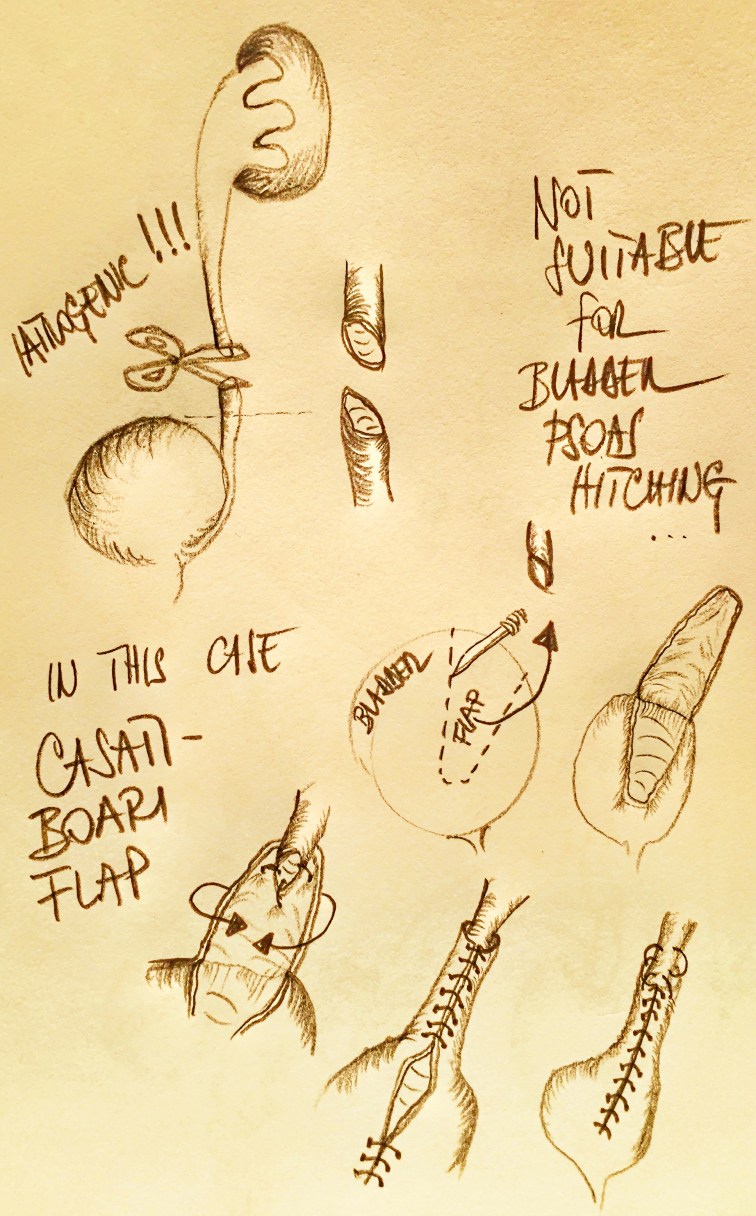 IATROGENIC !!!
NOT
SUITABLE
FOR
BLADDER
PSOAS
HITCHING
...
IN THIS CASE
CASATI-
BOARI
FLAP
BLADDER
FLAP